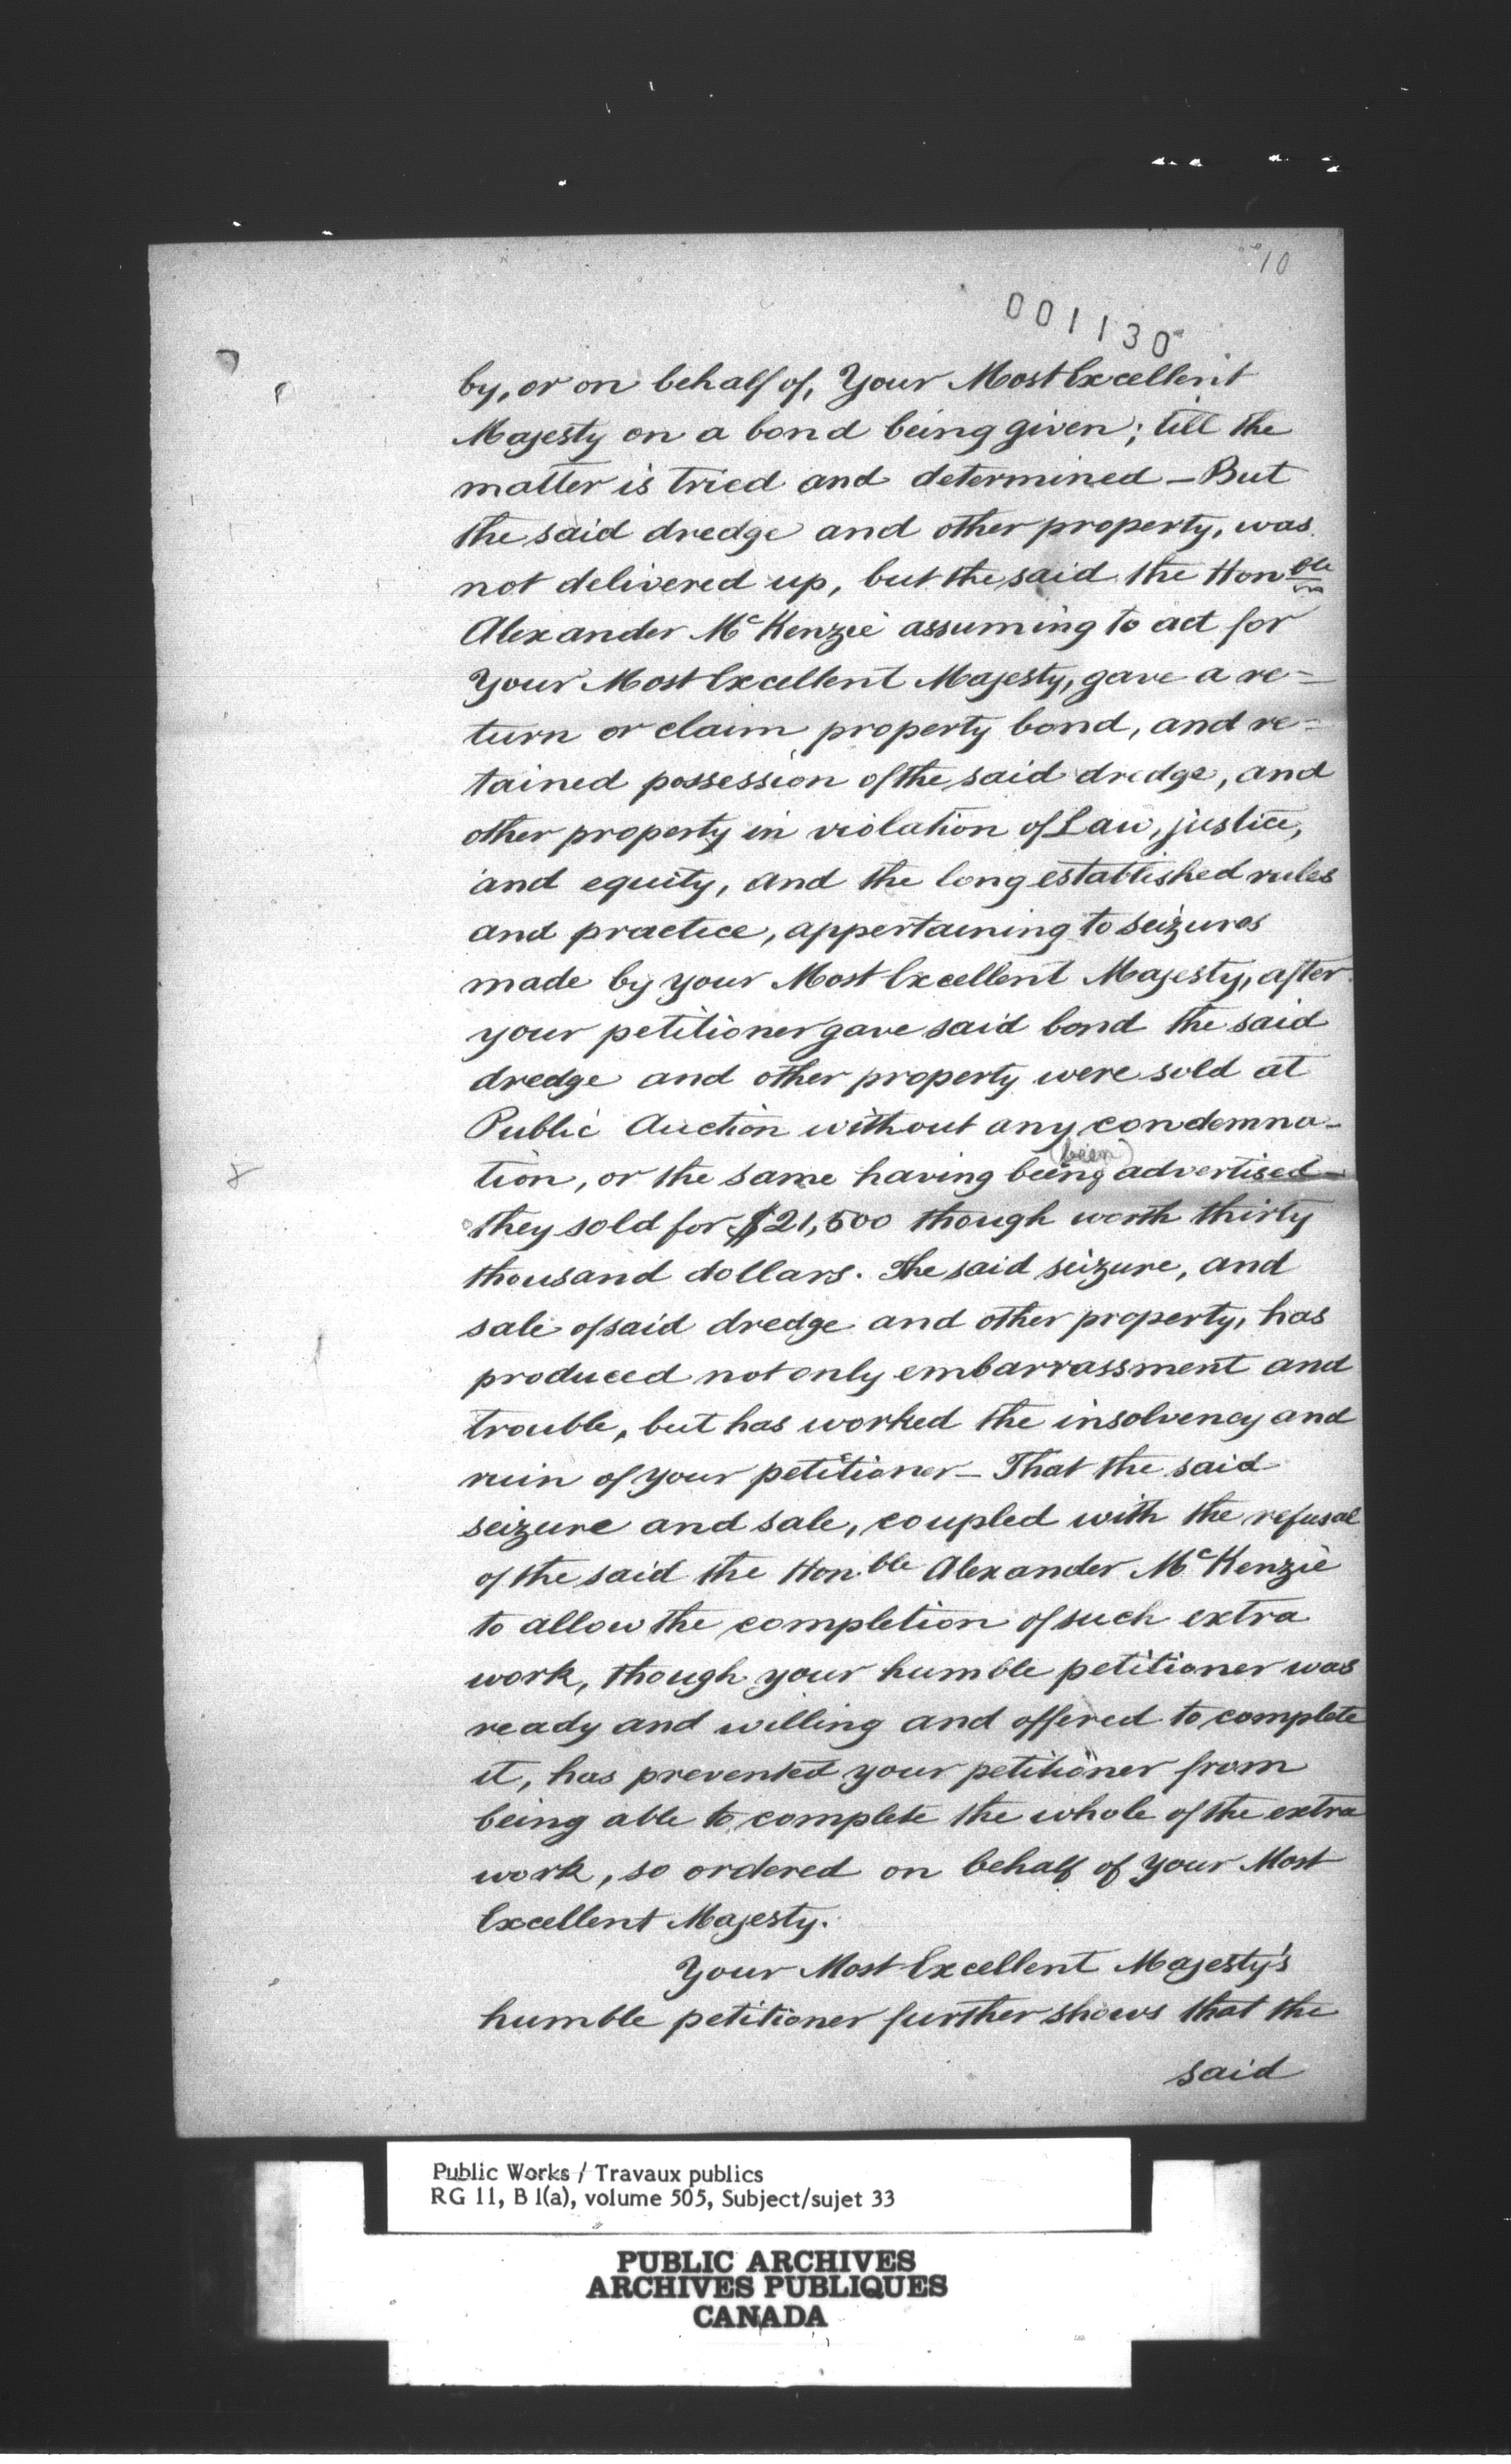 10
001130
by, or on behalf of, Your Most Excellent
Majesty on a bond being given; till the
matter is tried and determined — But
the said dredge and other property, was
not delivered up, but the said the Honble
Alexander McKenzie assuming to act for
Your Most Excellent Majesty, gave a re=
turn or claim property bond, and re=
tained possession of the said dredge, and
other property in violation of Law, justice,
and equity, and the long established rules
and practice, appertaining to seizures
made by your Most Excellent Majesty, after
your petitioner gave said bond the said
dredge and other property were sold at
Public Auction without any condemna-
(been)
tion, or the same having being advertised —
they sold for $21,500 though worth thirty
thousand dollars. The said seizure, and
sale of said dredge and other property, has
produced not only embarrassment and
trouble, but has worked the insolvency and
ruin of your petitioner — That the said
seizure and sale, coupled with the refusal
of the said the Honble Alexander McKenzie
to allow the completion of such extra
work, though your humble petitioner was
ready and willing and offered to complete
it, has prevented your petitioner from
being able to complete the whole of the extra
work, so ordered on behalf of Your Most
Excellent Majesty.
Your Most Excellent Majesty's
humble petitioner further shows that the
said
Public Works / Travaux publics
RG 11, B 1(a), volume 505, Subject/sujet 33
PUBLIC ARCHIVES
ARCHIVES PUBLIQUES
CANADA